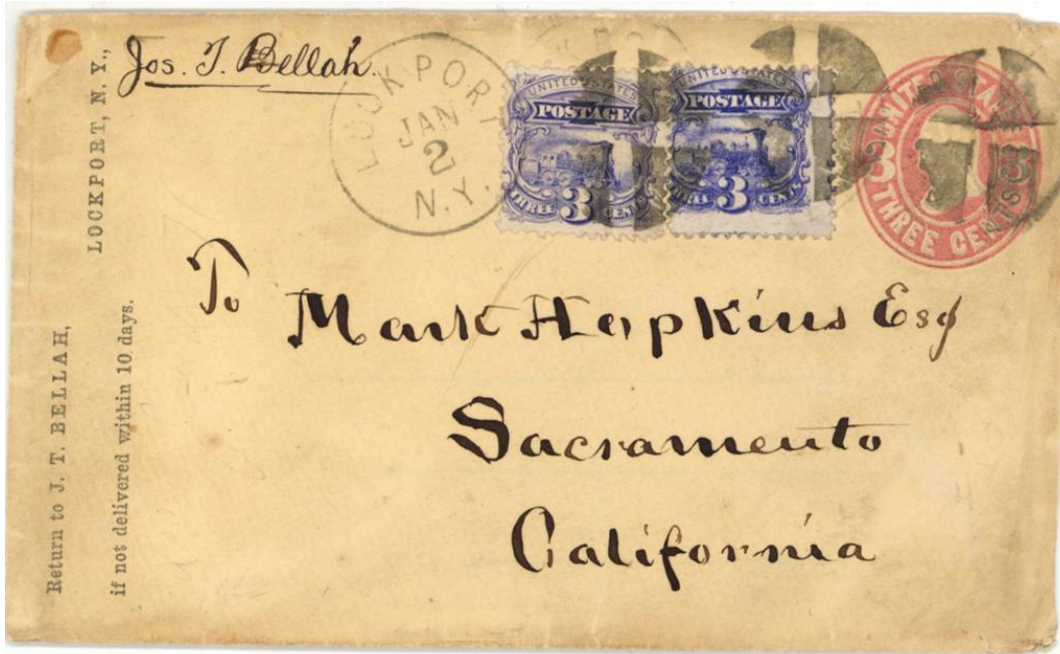 Jos. T. Bellah.
Return to J. T. BELLAH,
LOCKPORT, N. Y.,
if not delivered within 10 days.
LOCKPORT
JAN
2
N.Y.
UNITED STATES
POSTAGE
THREE 3 CENTS
UNITED STATES
POSTAGE
THREE 3 CENTS
UNITED STATES
3 3
THREE CENTS
To
Mark Hopkins Esq
Sacramento
California